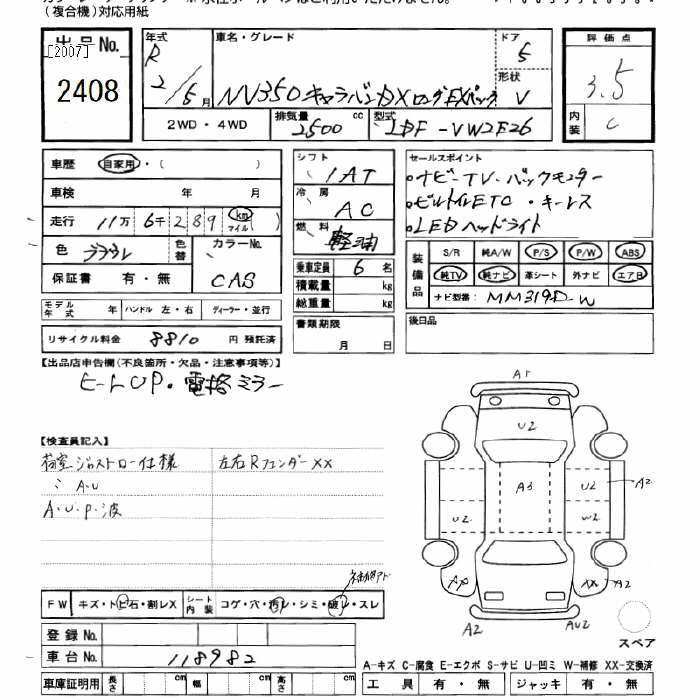 (複合機)対応用紙
出品No.
[2007]
2408
年式
R 2/5月
車名・グレード
NV350キャラバンDXロングEXパック
ドア
5
形状
V
2WD・4WD
排気量
2500 cc
型式
LDF-VW2E26
評価点
3.5
内装
C
車歴 自家用・( )
車検 年 月
走行 11万6千289 km マイル ( )
色 ブラウン 色替 カラーNo.
CAS
保証書 有・無
モデル年式 年 ハンドル 左・右 ディーラー・並行
リサイクル料金 8810 円 預託済
シフト
1AT
冷房
AC
燃料
軽油
乗車定員 6 名
積載量 kg
総重量 kg
書類期限
月 日
セールスポイント
・ナビ-TV・バックモニター
・ビルトインETC・キーレス
・LEDヘッドライト
装備品
S/R 純A/W P/S P/W ABS
純TV 純ナビ 革シート 外ナビ エアB
ナビ型番: MM319D-W
後日品
【出品店申告欄(不良箇所・欠品・注意事項等)】
ヒートUP・電格ミラー
【検査員記入】
荷室ジョストロー仕様
左右RフェンダーXX
: A・U
A・U・P・波
FW キズ・トビ石・割レX シート内装 コゲ・穴・汚レ・シミ・破レ・スレ
登録No.
車台No. 118982
車庫証明用 長さ cm 幅 cm 高さ cm
A1
U2
A3
U2
A2
U2
W2
A2
A2
AU2
スペア
A-キズ C-腐食 E-エクボ S-サビ U-凹ミ W-補修 XX-交換済
工具 有・無 ジャッキ 有・無